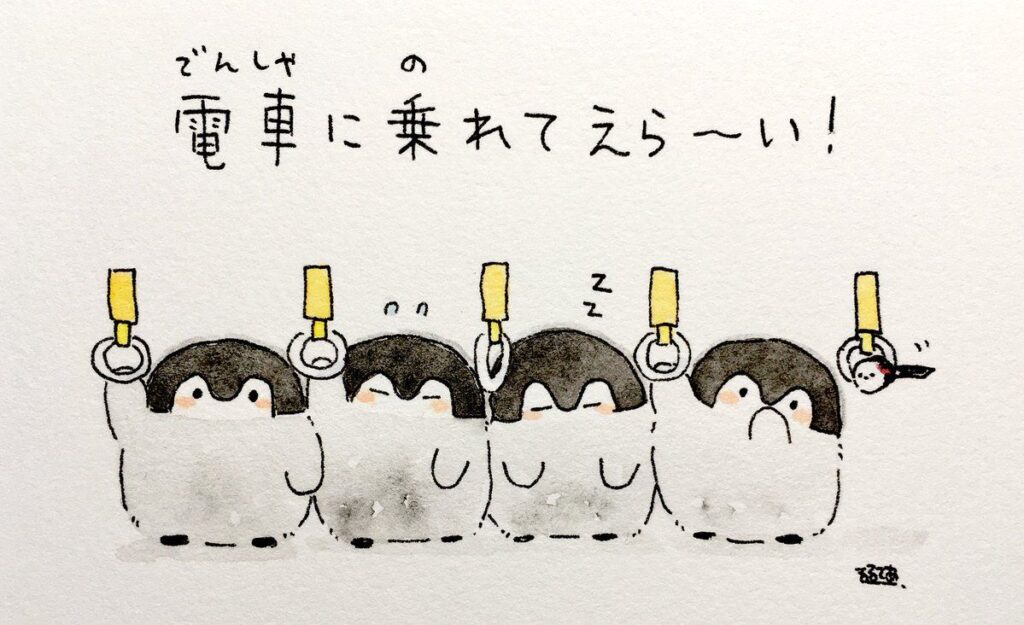 でんしゃ の
電車に乗れてえら〜い!
z
z
るるてあ